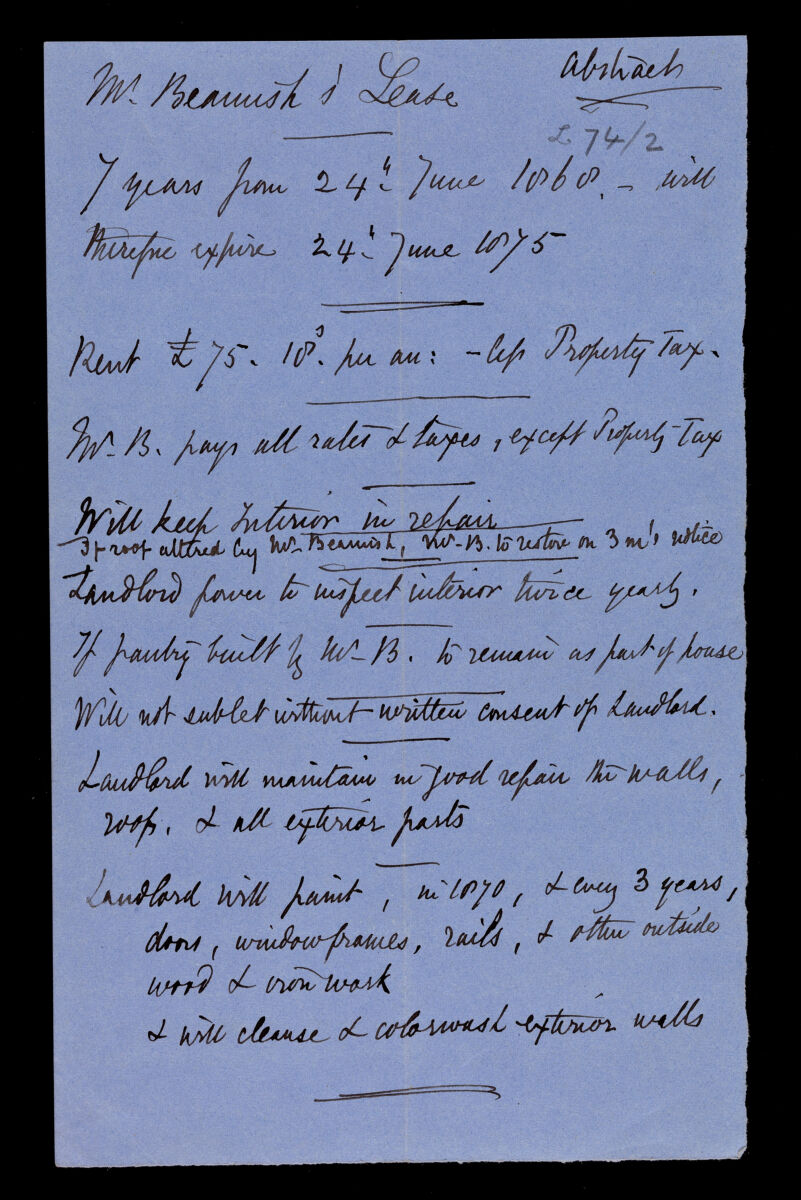 Mr. Beamish's Lease
Abstract
L 74/2
7 years from 24th. June 1868. – will
therefore expire 24th. June 1875
Rent £75. 18s. per an: – less Property Tax.
Mr. B. pays all rates & taxes, except Property Tax
Will keep Interior in repair
If roof altered by Mr. Beamish, Mr. B. to restore on 3 m's notice
Landlord power to inspect interior twice yearly.
If pantry built by Mr. B. to remain as part of house
Will not sublet without written consent of Landlord.
Landlord will maintain in good repair the walls,
roof, & all exterior parts
Landlord will paint, in 1870, & every 3 years,
doors, windowframes, rails, & other outside
wood & iron work
& will cleanse & colorwash exterior walls